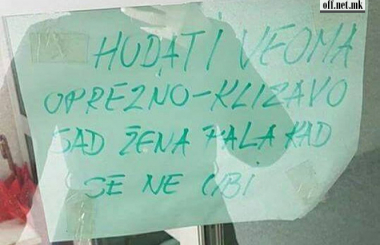 off.net.mk
HODATI VEOMA
OPREZNO-KLIZAVO
SAD ŽENA PALA KAD
SE NE UBI